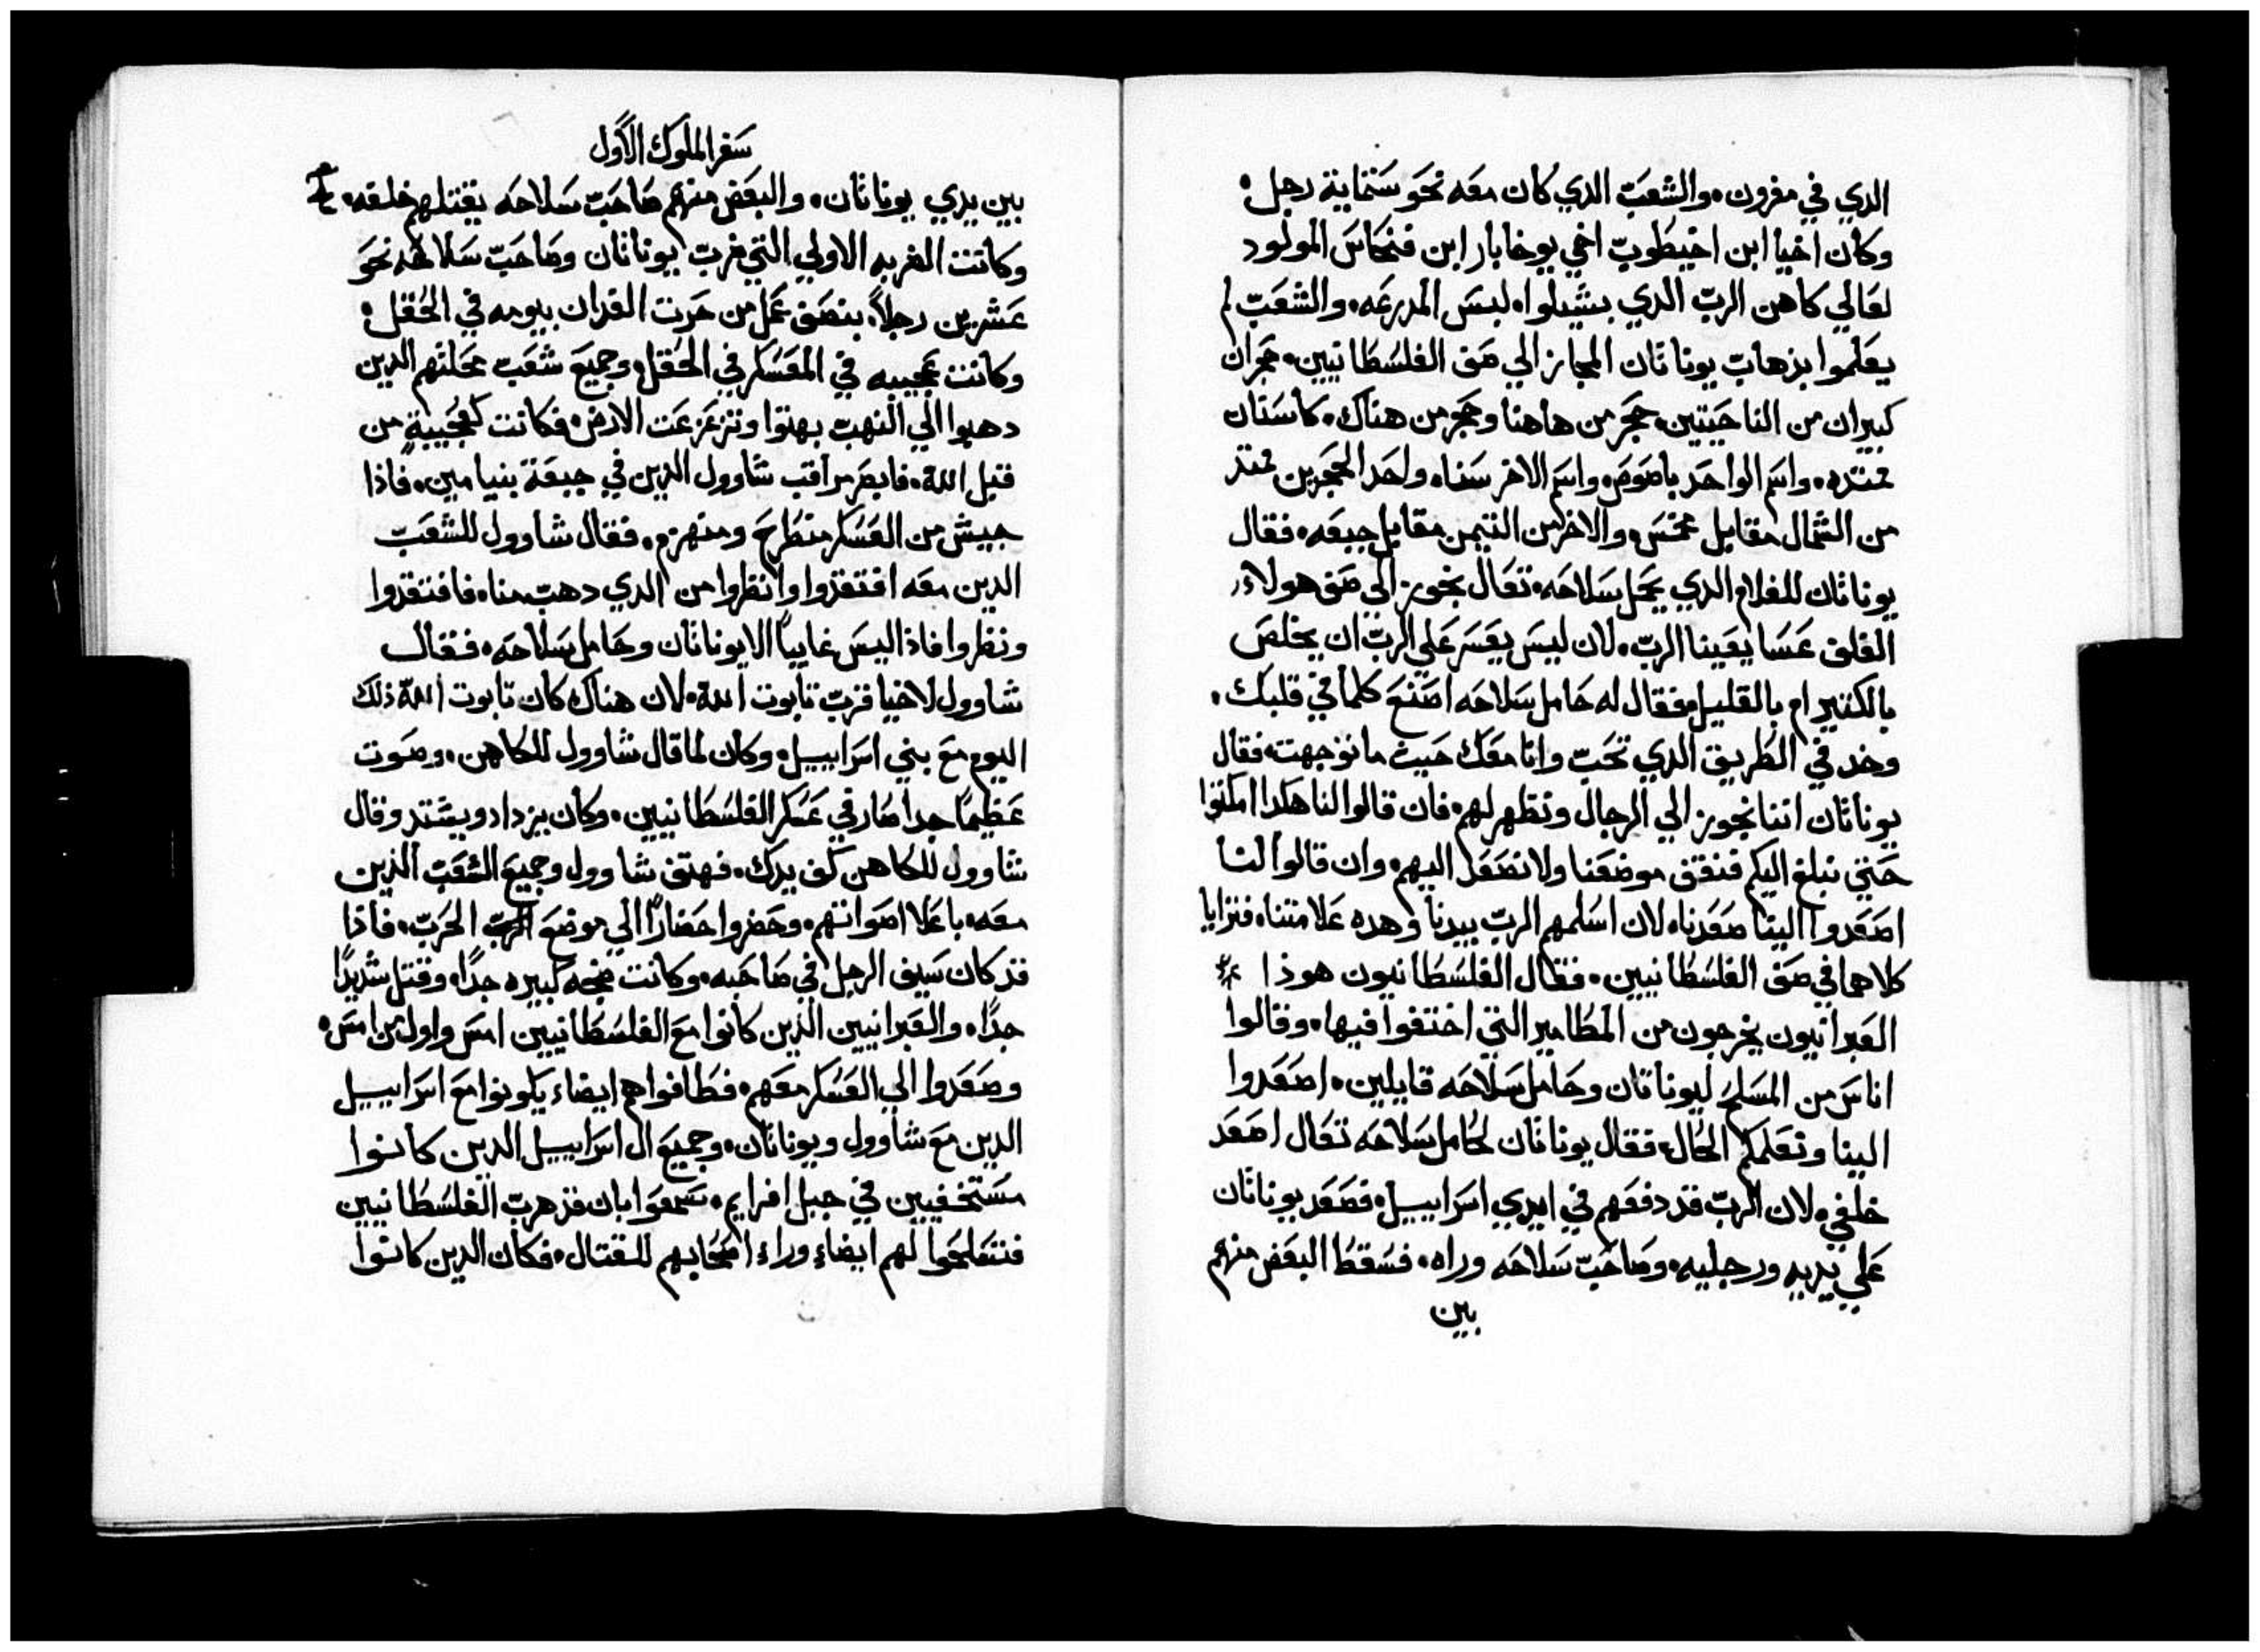 الدي في مغرون. والشعب الدي كان معه نحو ستماية رجل.
وكان اخيا ابن اخيطوب اخي يوخابار ابن فنحاس المولود
لعالي كاهن الرب الدي بشيلوا. لبس المدرعه. والشعب لم
يعلموا بذهاب يوناثان المجاز الي صف الفلسطانيين. حجران
كبيران من الناحيتين. حجر من هاهنا وحجر من هناك. كاسنان
ممتده. واسم الواحد باصوص. واسم الاخر سنا. واحد الحجرين ممتد
من الشمال مقابل مخمس. والاخر من التيمن مقابل جبعه. فقال
يوناثان للغلام الدي يحمل سلاحه. تعال نجوز الي صف هولاء
الغلف عسا يعينا الرب. لان ليس يعسر علي الرب ان يخلص
بالكثير ام بالقليل. فقال له حامل سلاحه اصنع كلما في قلبك.
وخد في الطريق الدي تحب وانا معك حيث ما توجهت. فقال
يوناثان اننا نجوز الي الرجال ونظهر لهم. فان قالوا لنا هكدا امكثوا
حتي نبلغ اليكم فنقف موضعنا ولا نصعد اليهم. وان قالوا لنا
اصعدوا الينا صعدنا. لان اسلمهم الرب بيدنا وهده علامتنا. فتزايا
كلاهما في صف الفلسطانيين. فقال الفلسطانيون هوذا
العبرانيون يخرجون من المطامير التي اختفوا فيها. وقالوا
اناس من المسلح ليوناثان وحامل سلاحه قايلين. اصعدوا
الينا ونعلمكم الحال. فقال يوناثان لحامل سلاحه تعال اصعد
خلفي. لان الرب قد دفعهم في ايدي اسراييل. فصعد يوناثان
علي يديه ورجليه. وصاحب سلاحه وراه. فسقط البعض منهم
بين
سفر الملوك الاول
بين يدي يوناثان. والبعض منهم صاحب سلاحه يقتلهم خلفه.
وكانت الضربه الاولي التي ضرب يوناثان وصاحب سلاحه نحو
عشرين رجلاً. بنصف عمل من حرث الفدان بيومه في الحقل.
وكانت عجيبه في المعسكر في الحقل. وجميع شعب محلتهم الدين
دهبوا الي النهب بهتوا وتزعزعت الارض. فكانت كعجيبة من
قبل الله. فابصر مراقب شاوول الدين في جبعة بنيامين. فاذا
جيش من العسكر منطرح ومنهزم. فقال شاوول للشعب
الدين معه افتقدوا وانظروا من الدي دهب منا. فافتقدوا
ونظروا فاذا ليس غايباً الا يوناثان وحامل سلاحه. فقال
شاوول لاخيا قرب تابوت الله. لان هناك كان تابوت الله ذلك
اليوم مع بني اسراييل. وكان لما قال شاوول للكاهن. وصوت
عظيماً جداً صار في عسكر الفلسطانيين. وكان يزداد ويشتد وقال
شاوول للكاهن كف يدك. فهتف شاوول وجميع الشعب الذين
معه. باعلا اصواتهم. وحضروا حضاراً الي موضع الحرب. فاذا
قد كان سيف الرجل في صاحبه. وكانت ضجه كبيره جداً. وقتل شديداً
جداً. والعبرانيين الذين كانوا مع الفلسطانيين امس واول من امس.
وصعدوا الي العسكر معهم. فطافوا هم ايضاء يكونوا مع اسراييل
الدين مع شاوول ويوناثان. وجميع ال اسراييل الدين كانوا
مستخفيين في جبل افرايم. سمعوا بان قد هرب الفلسطانيين
فتتعلجوا لهم ايضاء وراء اصحابهم للقتال. فكان الدين كانوا